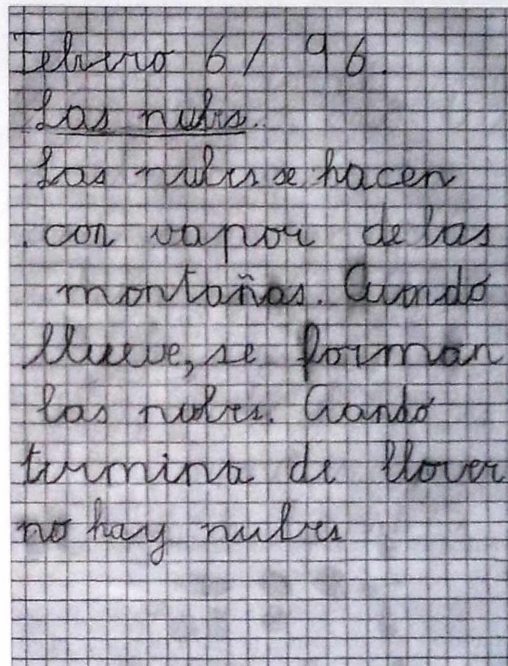 Febrero 6 / 96.
Las nubes.
Las nubes se hacen
con vapor de las
montañas. Cuando
llueve, se forman
las nubes. Cuando
termina de llover
no hay nubes